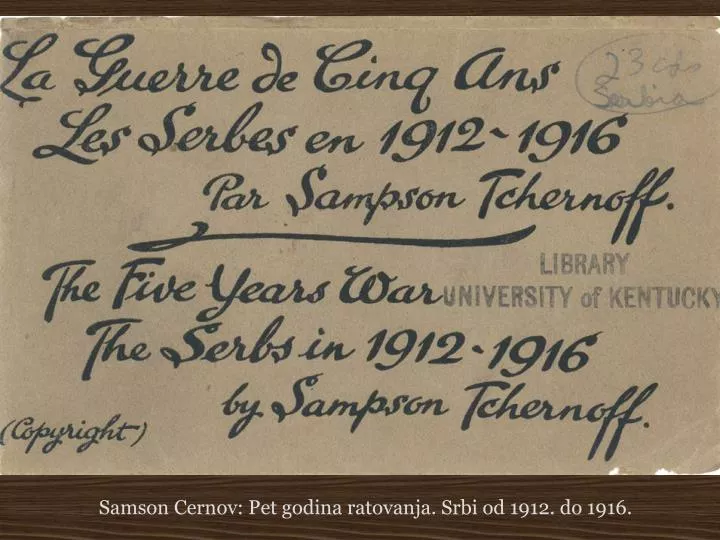 La Guerre de Cinq Ans
Les Serbes en 1912-1916
Par Sampson Tchernoff.
The Five Years War
The Serbs in 1912-1916
by Sampson Tchernoff.
(Copyright)
Serbia
LIBRARY
UNIVERSITY of KENTUCKY
Samson Cernov: Pet godina ratovanja. Srbi od 1912. do 1916.